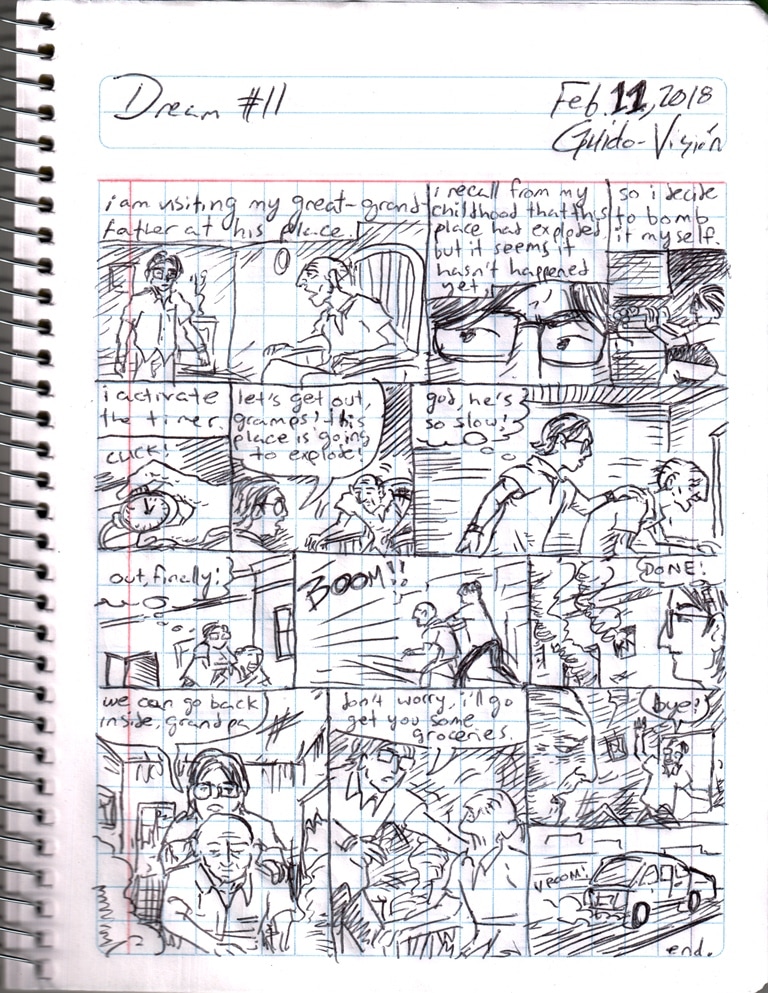 Dream #11
Feb. 11, 2018
Guido-Visión
i am visiting my great-grand-
father at his place.
i recall from my
childhood that this
place had exploded,
but it seems it
hasn't happened
yet,
so i decide
to bomb
it myself.
i activate
the timer.
CLICK!
let's get out,
gramps! this
place is going
to explode!
god, he's
so slow!
out, finally!
BOOM!!
DONE!
we can go back
inside, grandpa
don't worry, i'll go
get you some
groceries.
Bye!
VROOM!
end.